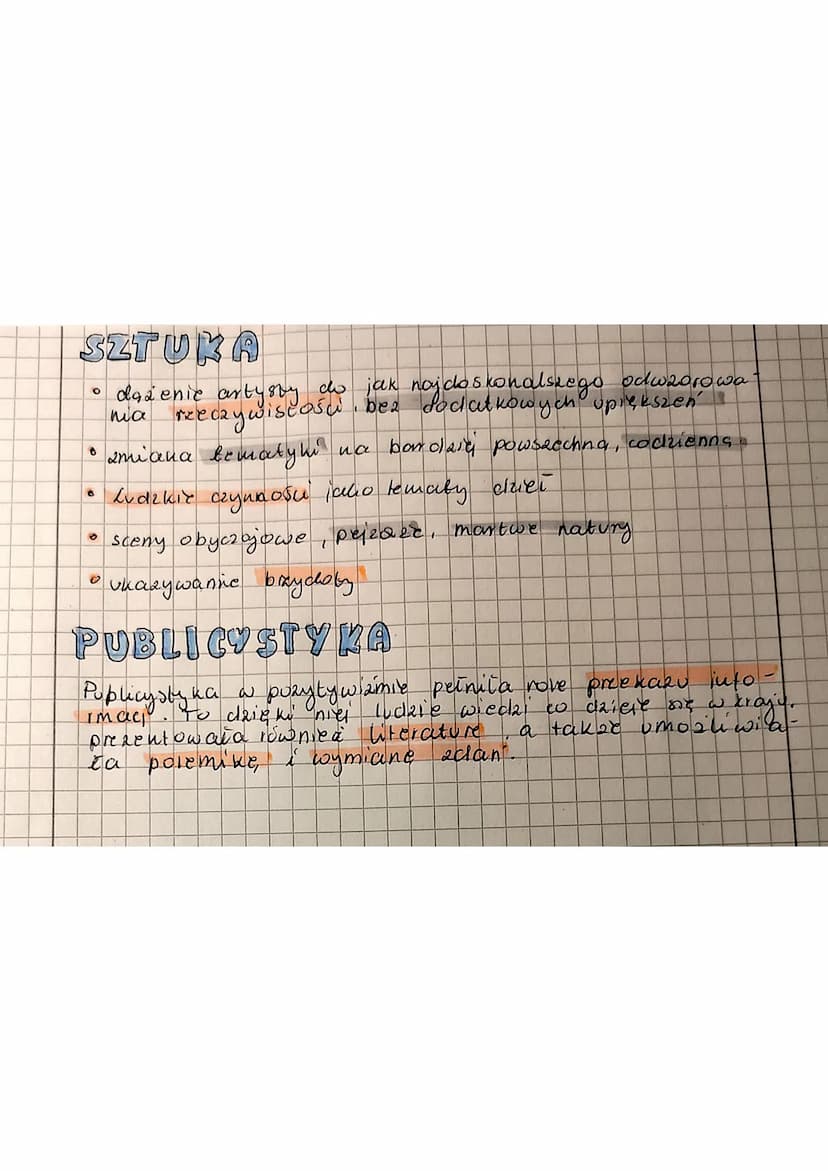 SZTUKA
• dążenie artysty do jak najdoskonalszego odwzorowa-
nia rzeczywistości, bez dodatkowych upiększeń
• zmiana tematyki na bardziej powszechną, codzienną
• ludzkie czynności jako tematy dzieł
• sceny obyczajowe, pejzaże, martwe natury
• ukazywanie brzydoty
PUBLICYSTYKA
Publicystyka w pozytywizmie pełniła role przekazu info-
rmacji. To dzięki niej ludzie wiedzi co dzieje się w kraju.
prezentowała również literature, a także umożliwia-
ła polemikę i wymianę zdań.